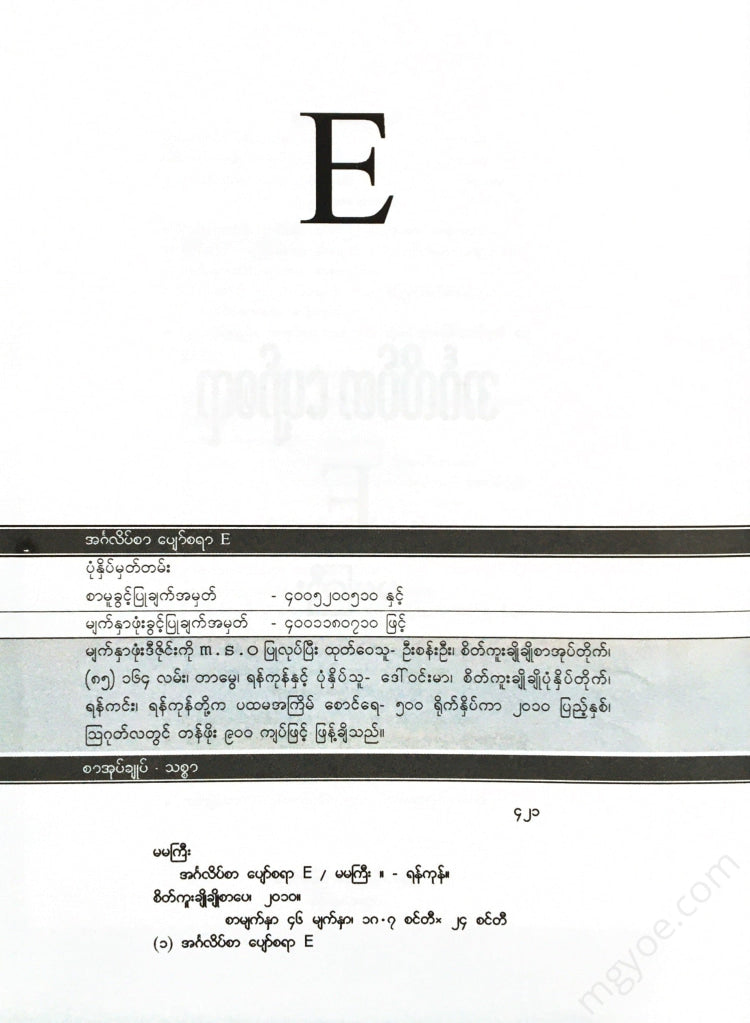 E
အင်္ဂလိပ်စာ ပျော်စရာ E
ပုံနှိပ်မှတ်တမ်း
စာမူခွင့်ပြုချက်အမှတ် - ၄၀၀၅၂၀၀၅၁၀ နှင့်
မျက်နှာဖုံးခွင့်ပြုချက်အမှတ် - ၄၀၀၁၁၈၀၇၁၀ ဖြင့်
မျက်နှာဖုံးဒီဇိုင်းကို m.s.o ပြုလုပ်ပြီး ထုတ်ဝေသူ- ဦးစန်းဦး၊ စိတ်ကူးချိုချိုစာအုပ်တိုက်၊
(၈၅) ၁၆၄ လမ်း၊ တာမွေ၊ ရန်ကုန်နှင့် ပုံနှိပ်သူ- ဒေါ်ဝင်းမာ၊ စိတ်ကူးချိုချိုပုံနှိပ်တိုက်၊
ရန်ကင်း၊ ရန်ကုန်တို့က ပထမအကြိမ် စောင်ရေ- ၅၀၀ ရိုက်နှိပ်ကာ ၂၀၁၀ ပြည့်နှစ်၊
ဩဂုတ်လတွင် တန်ဖိုး ၉၀၀ ကျပ်ဖြင့် ဖြန့်ချိသည်။
စာအုပ်ချုပ် - သစ္စာ
၄၂၁
မမကြီး
အင်္ဂလိပ်စာ ပျော်စရာ E / မမကြီး ။ - ရန်ကုန်။
စိတ်ကူးချိုချိုစာပေ၊ ၂၀၁၀။
စာမျက်နှာ ၄၆ မျက်နှာ၊ ၁၈.၇ စင်တီ× ၂၄ စင်တီ
(၁) အင်္ဂလိပ်စာ ပျော်စရာ E
mgyoe.com